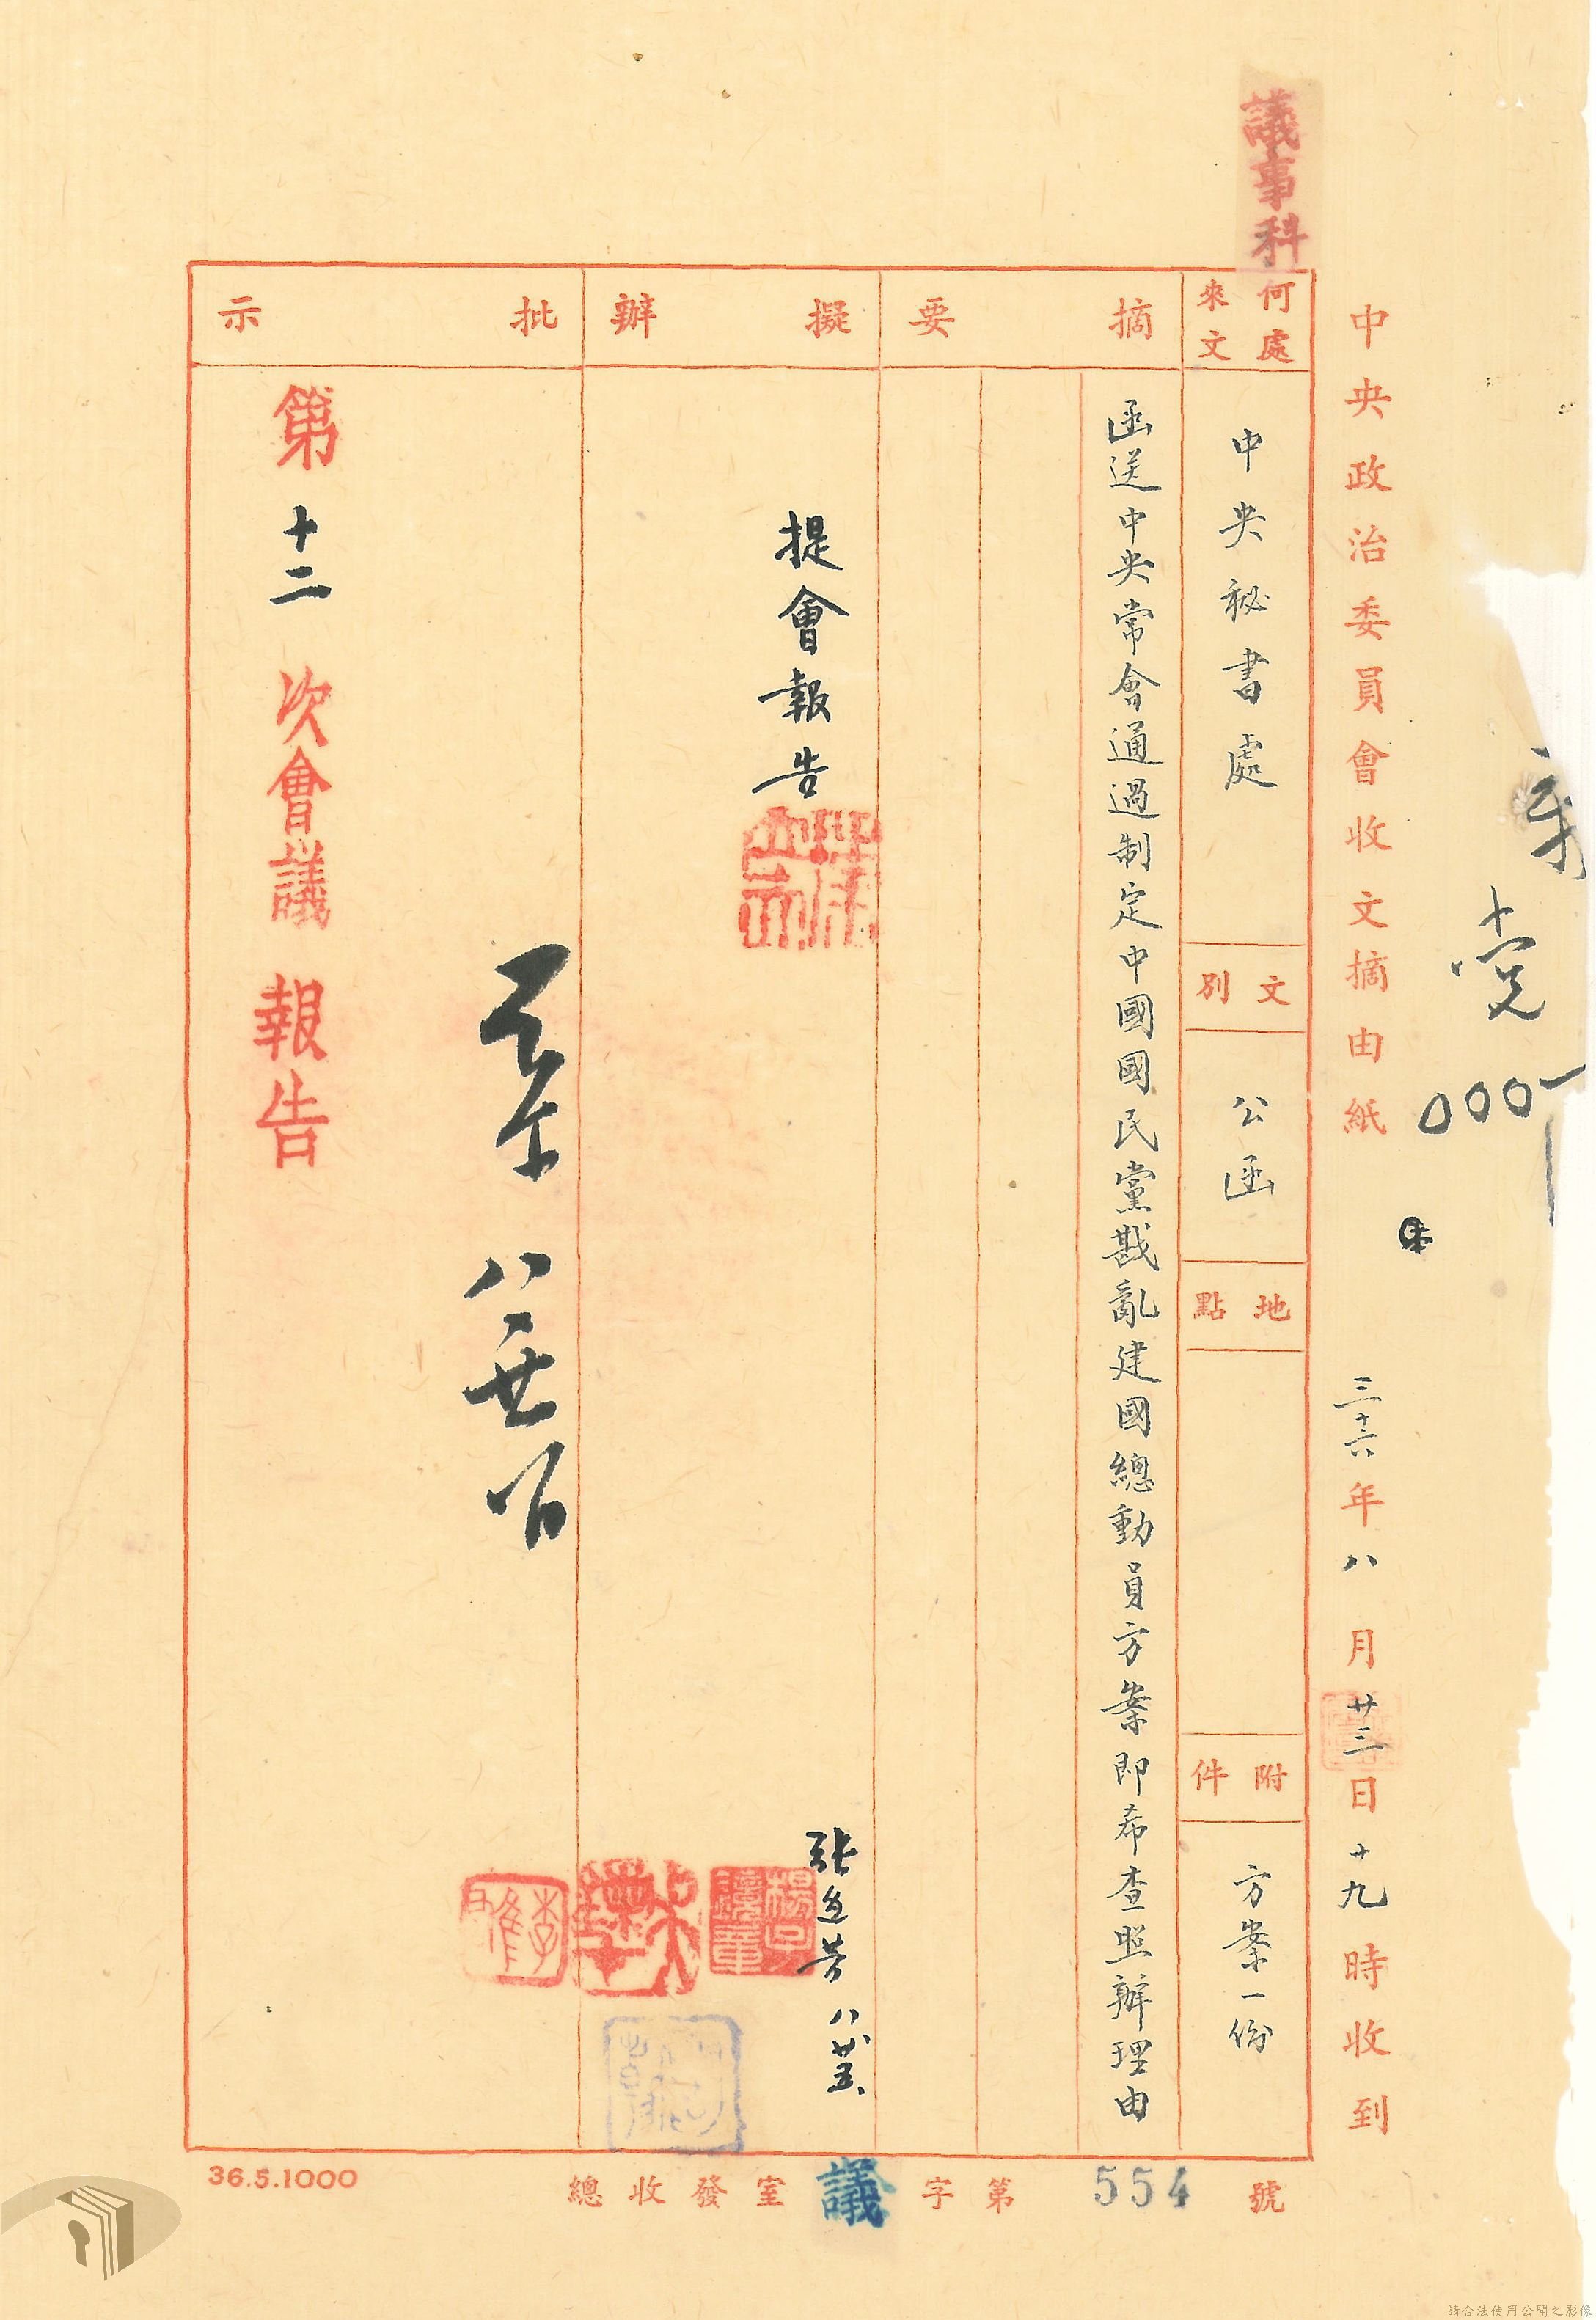 議事科
中央政治委員會收文摘由紙 三十六年八月廿三日十九時收到
黨
0001
何處來文
中央秘書處
文別
公函
地點
附件
方案一份
摘要
函送中央常會通過制定中國國民黨戡亂建國總動員方案即希查照辦理由
擬辦
提會報告
張延芳 八廿五
楊
批示
八廿五
李唯
第十二次會議報告
總收發室議字第554號
36.5.1000
請合法使用公開之影像